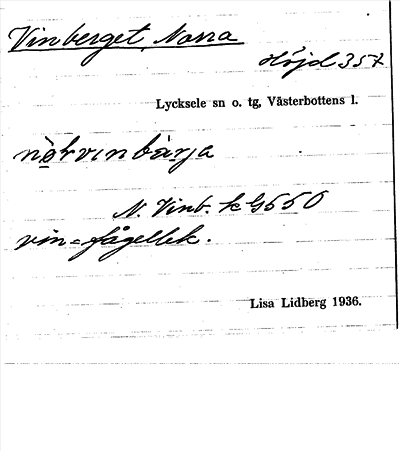 Vinberget, Norra
Höjd 357
Lycksele sn o. tg, Västerbottens l.
nòrvinbárja
N. Vinb. k G550
vin = fågellek.
Lisa Lidberg 1936.